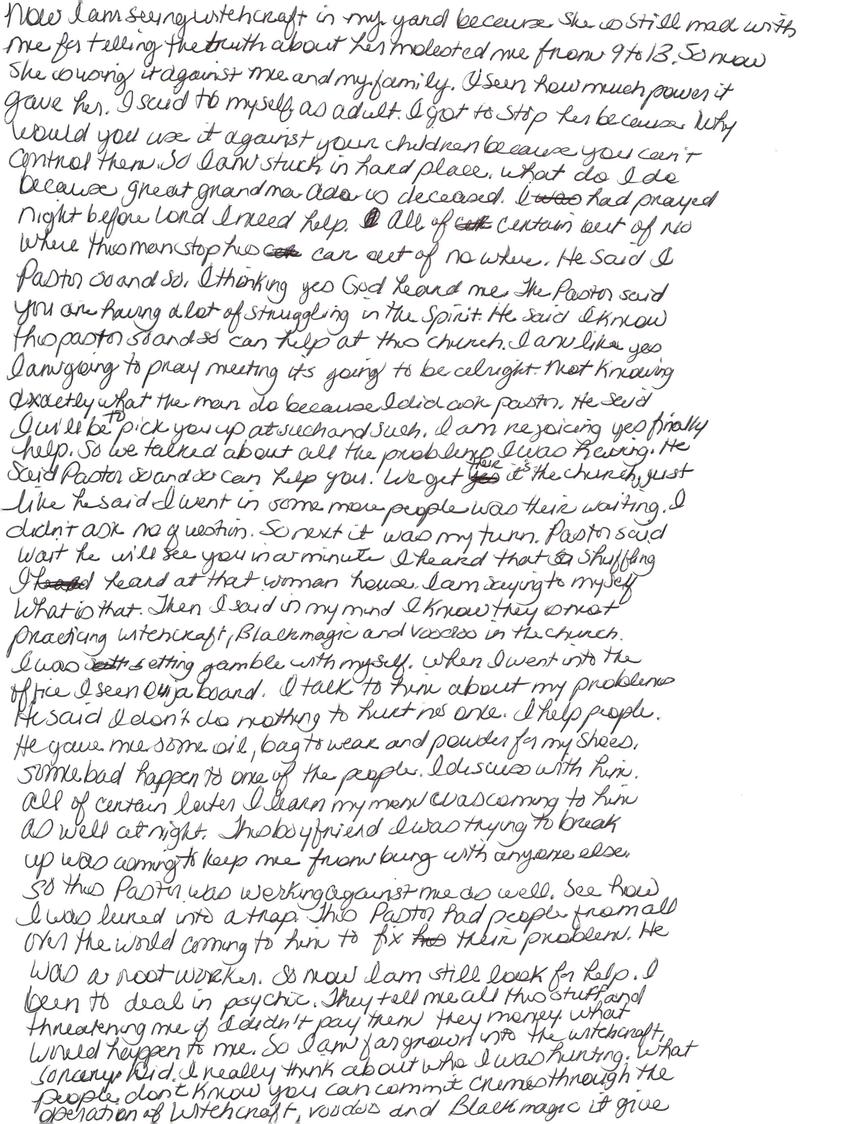 Now I am seeing witchcraft in my yard because she is still mad with
me for telling the truth about her molested me from 9 to 13. So now
she is using it against me and my family. I seen how much power it
gave her. I said to myself as adult. I got to stop her because why
would you use it against your children because you can't
control them. So I am stuck in hard place. what do I do
because great grandma Ada is deceased. I had prayed
night before Lord I need help. All of certain out of no
where this man stop his car out of no where. He said I
Pastor so and so. I thinking yes God heard me. The Pastor said
you are having alot of struggling in the Spirit. He said I know
this pastor so and so can help at this church. I am like yes
I am going to pray meeting it's going to be alright. Not knowing
exactly what the man do because I did ask pastor. He said
I will be to pick you up at such and such. I am rejoicing yes finally
help. So we talked about all the problems I was having. He
said Pastor so and so can help you. We get their it's the church, just
like he said I went in some more people was their waiting. I
didn't ask no question. So next it was my turn. Pastor said
wait he will see you in a minute I heared that shuffling
I heard at that woman house. I am saying to myself
what is that. Then I said in my mind I know they is not
practicing witchcraft, Blackmagic and voodoo in the church.
I was setting gamble with myself. When I went into the
office I seen Ouja board. I talk to him about my problems
He said I don't do nothing to hurt no one. I help people.
He gave me some oil, bag to wear and powder for my shoes.
some bad happen to one of the people. I discuss with him.
all of certain later I learn my mom was coming to him
as well at night. This boyfriend I was trying to break
up was coming to keep me from bung with anyone else.
So this Pastor was working against me as well. See how
I was lured into a trap. This Pastor had people from all
over the world coming to him to fix their problem. He
was a root worker. So now I am still look for help. I
been to deal in psychic. They tell me all this stuff, and
threatening me if I didn't pay them they money what
would happen to me. So I am far grown into the witchcraft,
sorcery kid. I really think about who I was hurting. What
people don't know you can commit crimes through the
operation of Witchcraft, voodoo and Black magic it give